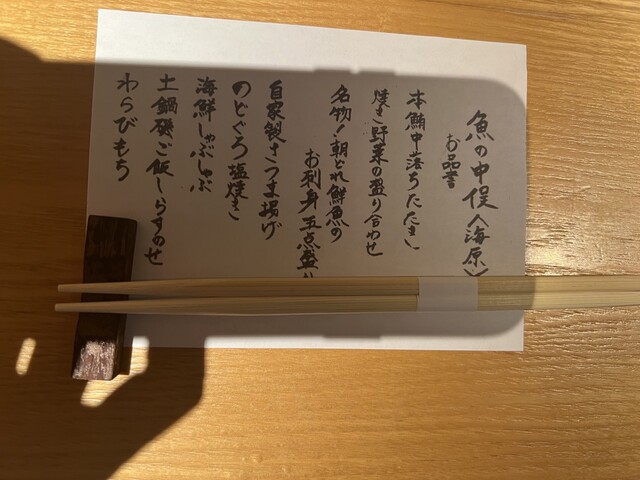 魚の中俣〈海原〉
お品書
本鮪中落ちたたき
焼き野菜の盛り合わせ
名物!朝どれ鮮魚の
お刺身五点盛り
自家製さつま揚げ
のどぐろ塩焼き
海鮮しゃぶしゃぶ
土鍋磯ご飯しらすのせ
わらびもち